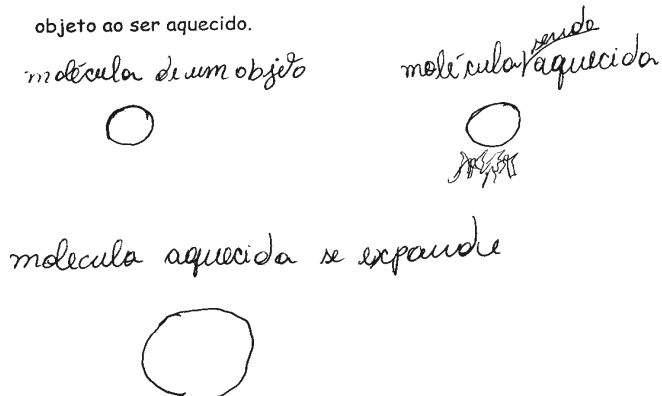 objeto ao ser aquecido.
molécula de um objeto
molécula sendo aquecida
molecula aquecida se expande